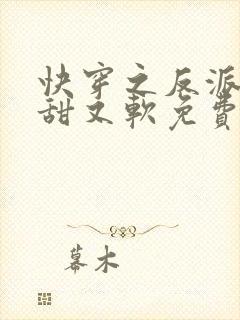 快穿之反派
甜又軟免費
幕木